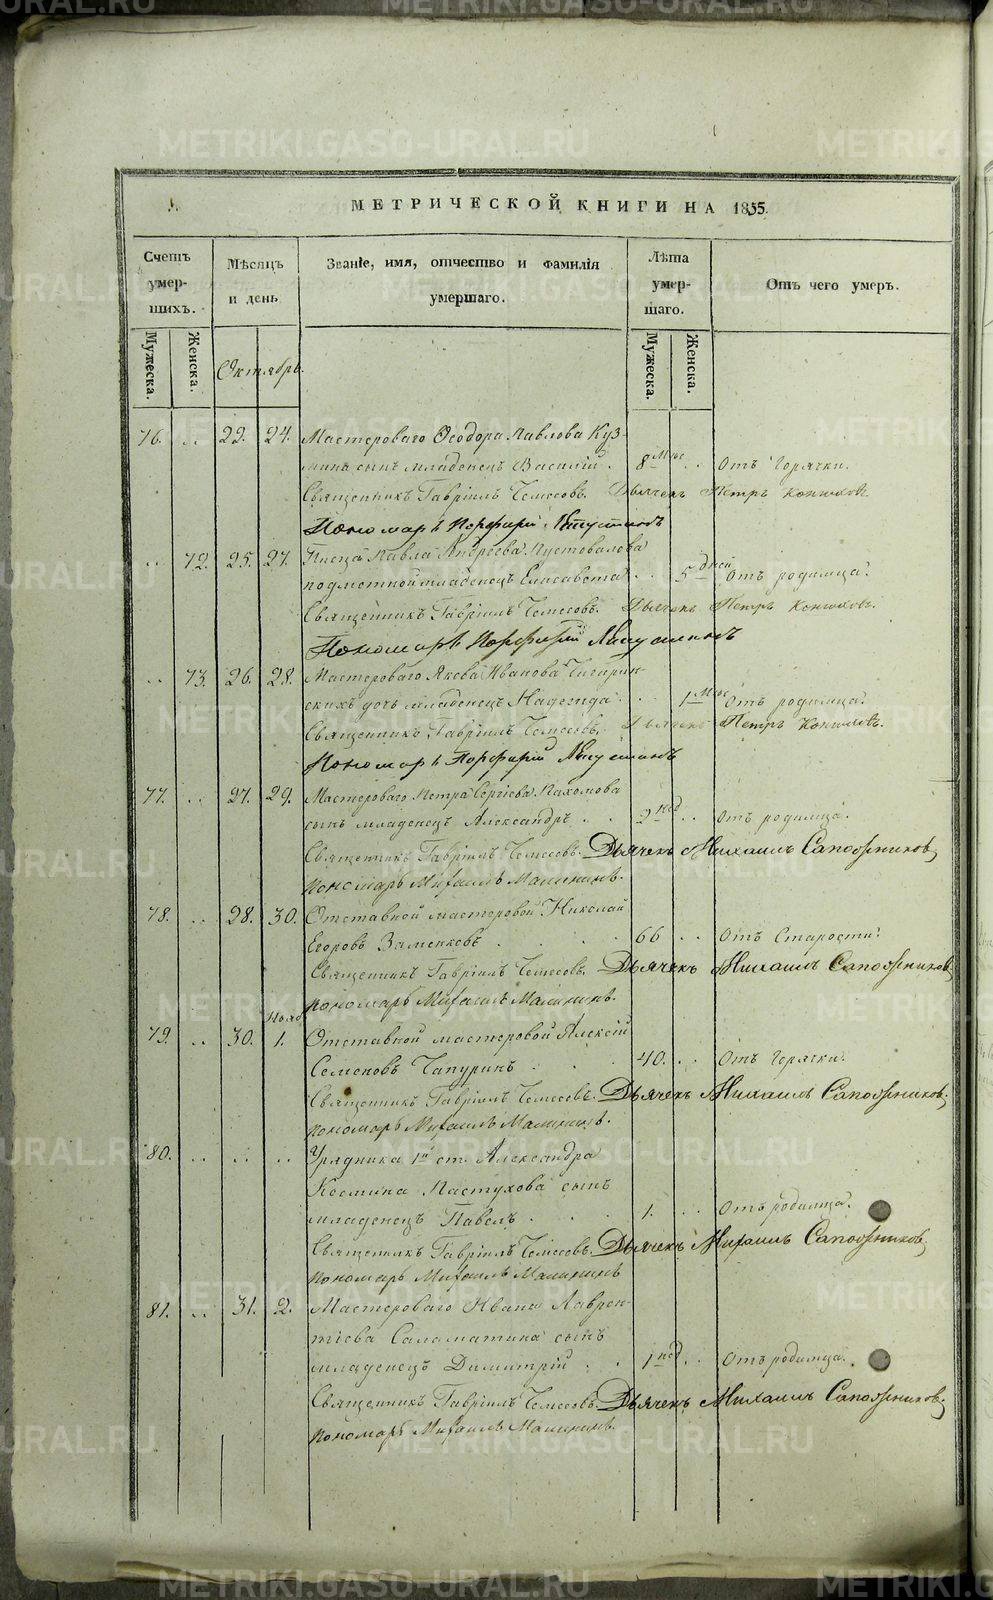 МЕТРИЧЕСКОЙ КНИГИ НА 1855.
Счетъ умер-шихъ.
Мѣсяцъ и день
Званіе, имя, отчество и фамилія умершаго.
Лѣта умер-шаго.
Отъ чего умеръ.
Мужеска. Женска. Октябрь. Мужеска. Женска.
76. .. 22. 24. Мастероваго Ѳеодора Павлова Куз-
мина сынъ младенецъ Василій. 8 Мѣс .. Отъ Горячки.
Священникъ Гавріилъ Дьячекъ Петръ Конюховъ.
Пономарь Порфирій
.. 72. 25. 27. Писца Павла Андреева Пустовалова
младенецъ Елисавета .. 5 дней Отъ родимца.
Священникъ Гавріилъ Дьячекъ Петръ Конюховъ.
Пономарь Порфирій
.. 73. 26. 28. Мастероваго Якова Иванова
скихъ дочь младенецъ Надежда .. 1 Мѣс Отъ родимца.
Священникъ Гавріилъ Дьячекъ Петръ Конюховъ.
Пономарь Порфирій
77. .. 27. 29. Мастероваго Петра Сергіева Пахомова
сынъ младенецъ Александръ . . 2 нед .. Отъ родимца.
Священникъ Гавріилъ Дьячекъ Михаилъ Сапожниковъ
Пономарь Михаилъ Малининъ.
78. .. 28. 30. Отставной мастеровой Николай
Егоровъ 66 .. Отъ Старости.
Священникъ Гавріилъ Дьячекъ Михаилъ Сапожниковъ
Пономарь Михаилъ Малининъ.
Нояб
79. .. 30. 1. Отставной мастеровой Алексій
Семеновъ Чапуринъ . . 40. .. Отъ Горячки.
Священникъ Гавріилъ Дьячекъ Михаилъ Сапожниковъ.
Пономарь Михаилъ Малининъ.
80. .. .. .. Урядника 1й ст. Александра
Космина Пастухова сынъ
младенецъ Павелъ . . 1. .. Отъ родимца.
Священникъ Гавріилъ Дьячекъ Михаилъ Сапожниковъ
Пономарь Михаилъ Малининъ
81. .. 31. 2. Мастероваго Ивана Лаврен-
тіева Саламатина сынъ
младенецъ Димитрій . . 1 нед .. Отъ родимца.
Священникъ Гавріилъ Дьячекъ Михаилъ Сапожниковъ.
Пономарь Михаилъ Малининъ.
METRIKI.GASO-URAL.RU